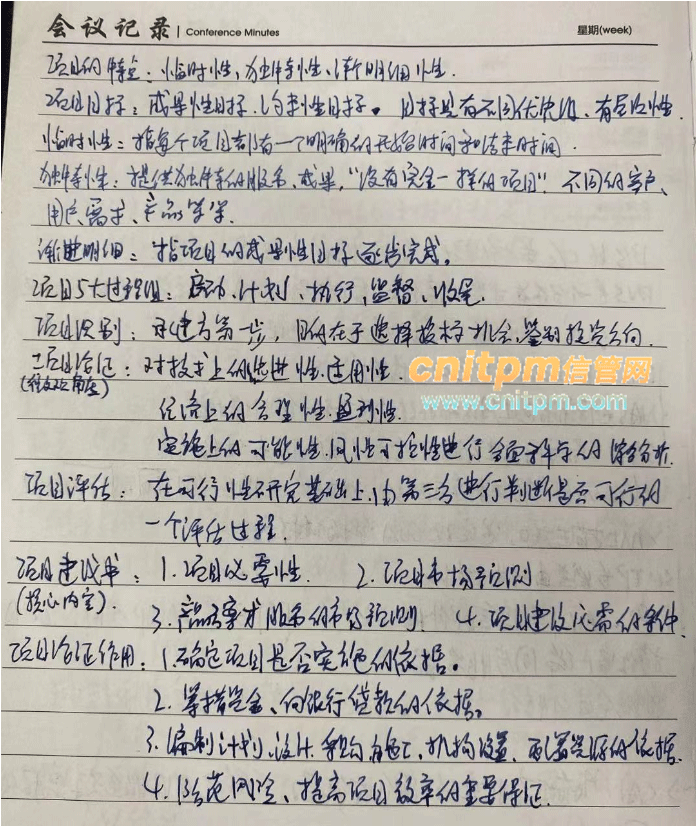 会议记录 | Conference Minutes 星期(week)
项目的特点：临时性，独特性，渐明细性.
项目目标：成果性目标，约束性目标。目标具有不同优先级、有层次性
临时性：指每个项目都有一个明确的开始时间和结束时间.
独特性：提供独特的服务、成果，"没有完全一样的项目" 不同的客户、
用户需求、产品等等
渐进明细：指项目的成果性目标逐步完成。
项目5大过程组：启动、计划、执行、监督、收尾
项目识别：承建方第一步，目的在于选择投标机会、鉴别投资方向
项目论证：对技术上的先进性、适用性.
cnitpm信管网
www.cnitpm.com
经济上的合理性、盈利性.
实施上的可能性、风险性可控性进行全面科学的综合分析.
项目评估：在可行性研究基础上，由第三方进行判断是否可行的
一个评估过程.
项目建议书：1.项目必要性. 2.项目市场预测
(核心内容).
3.产品要求服务的市场预测. 4.项目建设必需的条件.
项目论证作用：1.确定项目是否实施的依据。
2.筹措资金、向银行贷款的依据。
3.编制计划、设计、采购、施工、机构设置、配置资源的依据.
4.防范风险、提高项目效率的重要保证.